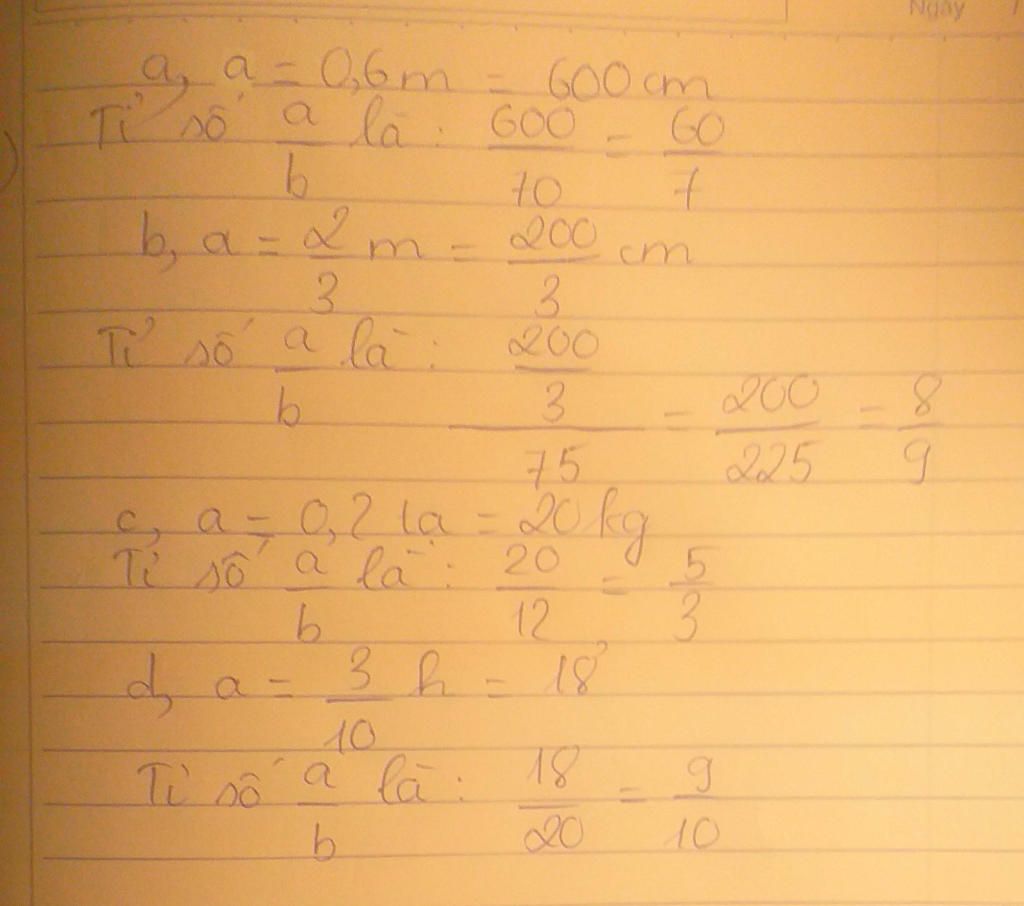 Ngày
a, a = 0,6m = 600cm
Tỉ số a/b là: 600/70 = 60/7
b, a = 2/3 m = 200/3 cm
Tỉ số a/b là: 200/3 / 75 = 200/225 = 8/9
c, a = 0,2 tạ = 20kg
Tỉ số a/b là: 20/12 = 5/3
d, a = 3/10 h = 18'
Tỉ số a/b là: 18/20 = 9/10